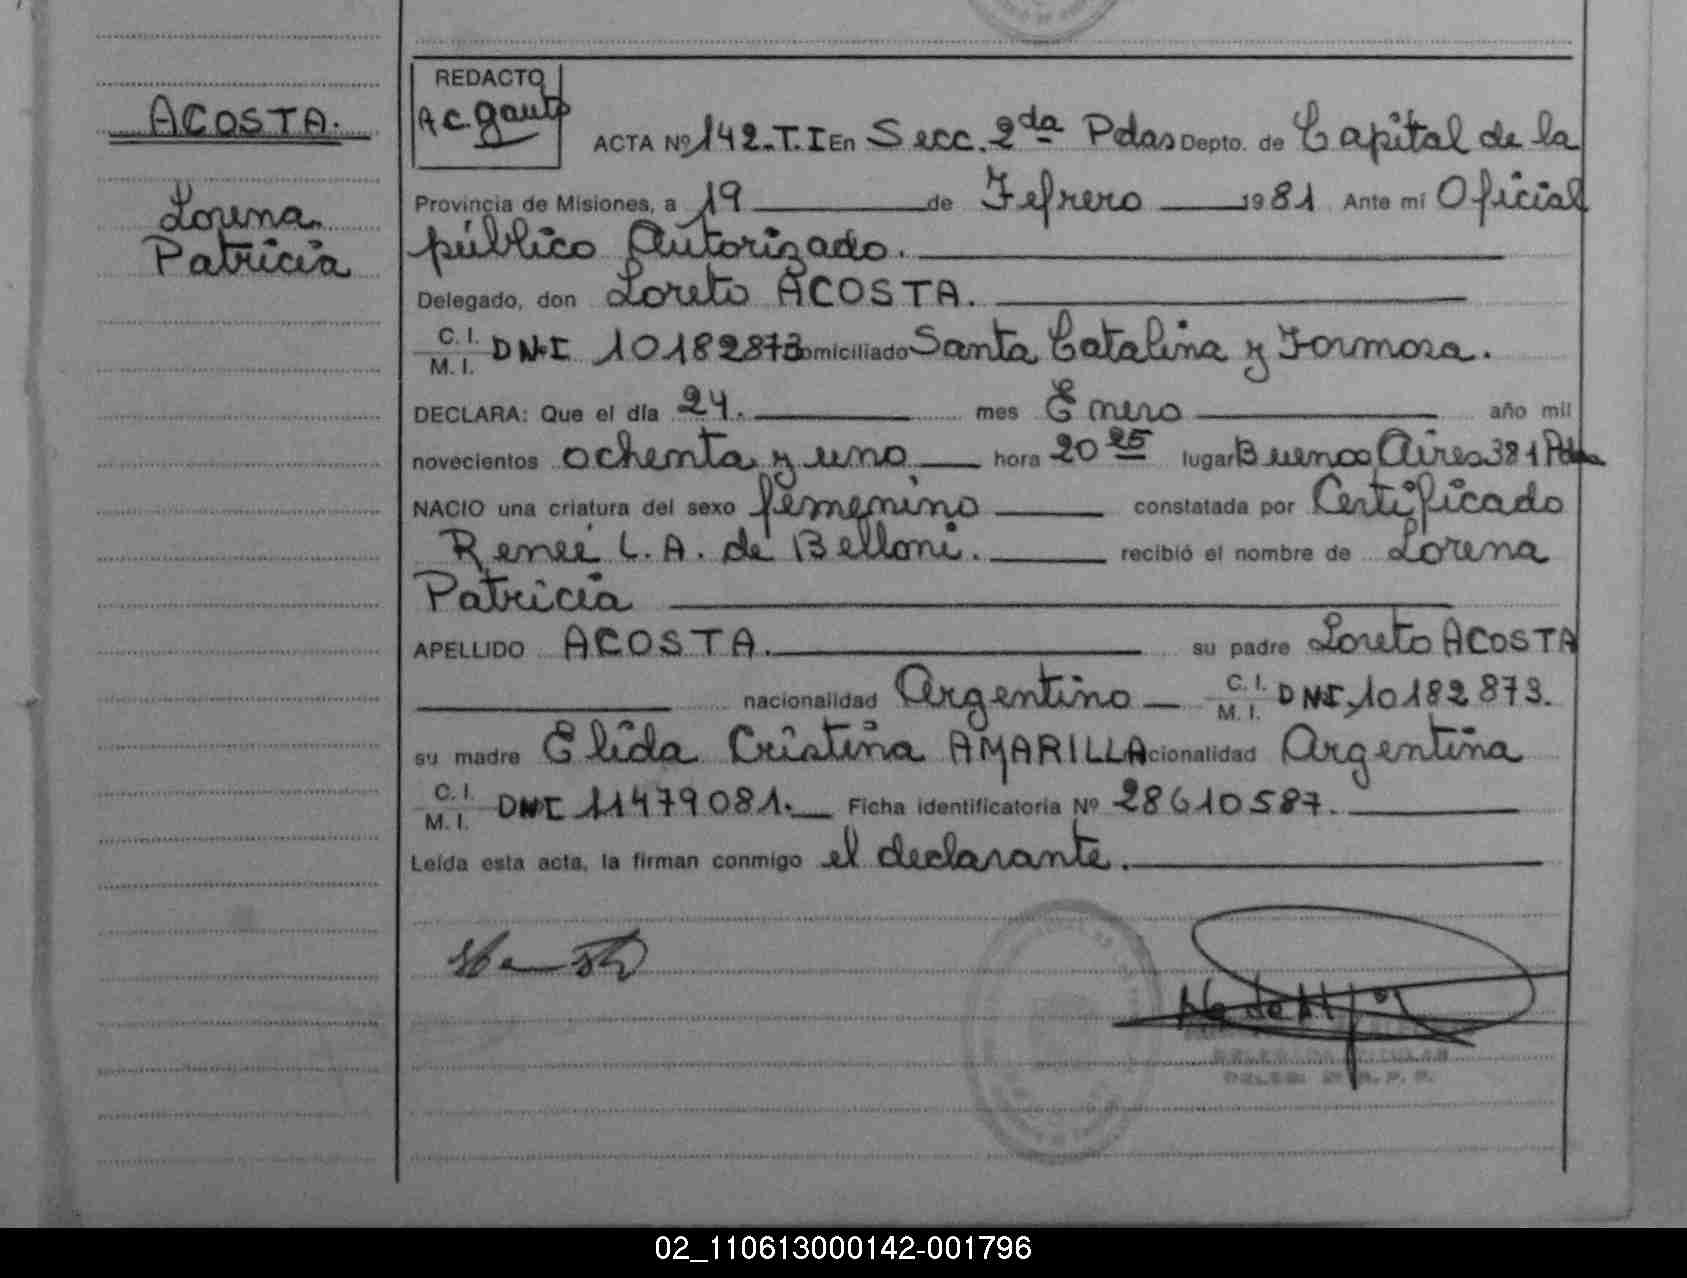 ACOSTA.
Lorena
Patricia
REDACTO
A.C. Gauto
ACTA Nº 142.T.I En Secc. 2da Pdas Depto. de Capital de la
Provincia de Misiones, a 19 de Febrero 1981 Ante mí Oficial
público Autorizado.
Delegado, don Loreto ACOSTA.
C. I.
M. I. DNI 10182873 domiciliado Santa Catalina y Formosa.
DECLARA: Que el día 24. mes Enero año mil
novecientos ochenta y uno hora 20 25 lugar Buenos Aires 381 Pdas
NACIO una criatura del sexo femenino constatada por Certificado
Reneé L. A. de Belloni. recibió el nombre de Lorena
Patricia
APELLIDO ACOSTA. su padre Loreto ACOSTA
nacionalidad Argentino C. I.
M. I. DNI 10182873.
su madre Elida Cristina AMARILLA cionalidad Argentina
C. I.
M. I. DNI 11479081. Ficha identificatoria Nº 28610587.
Leída esta acta, la firman conmigo el declarante.
02_110613000142-001796